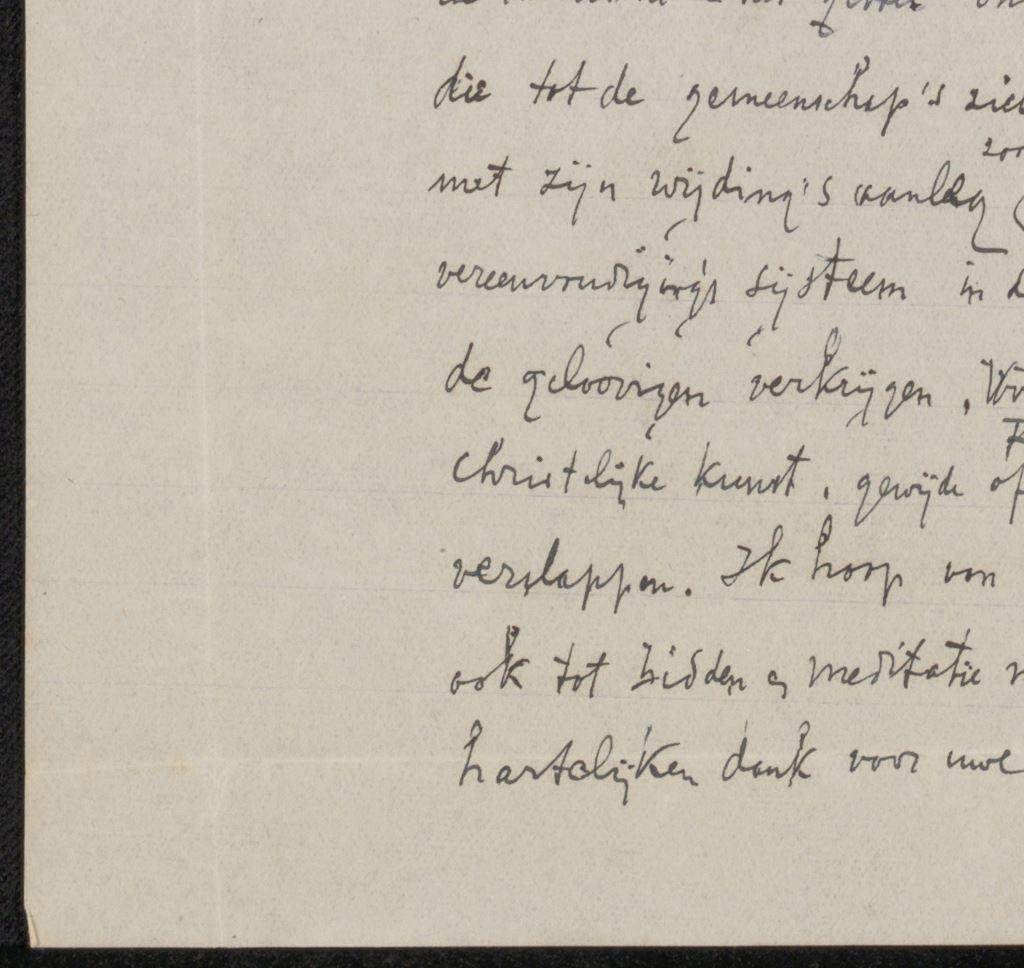 die tot de gemeenschap's
met zijn wijding's aanleg
vereenvoudiging's sijsteem in
de geloovigen verkrijgen.
Christelijke kunst, gewijde of
verslappen. Ik hoop van
ook tot bidden en meditatie
hartelijken dank voor uwe